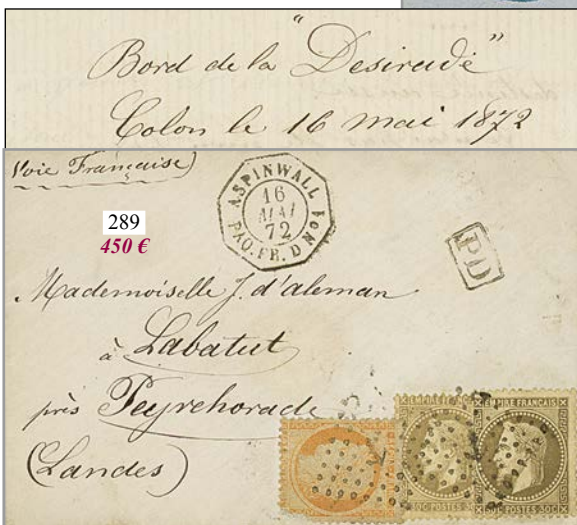 Bord de la "Desirade"
Colon le 16 mai 1872
Voie Française
ASPINWALL
16
MAI
72
PAQ. FR. D No 1
289
450 €
PD
Mademoiselle J. d'aleman
à Labatut
près Peyrehorade
(Landes)
EMPIRE FRANÇAIS
30C POSTES 30C